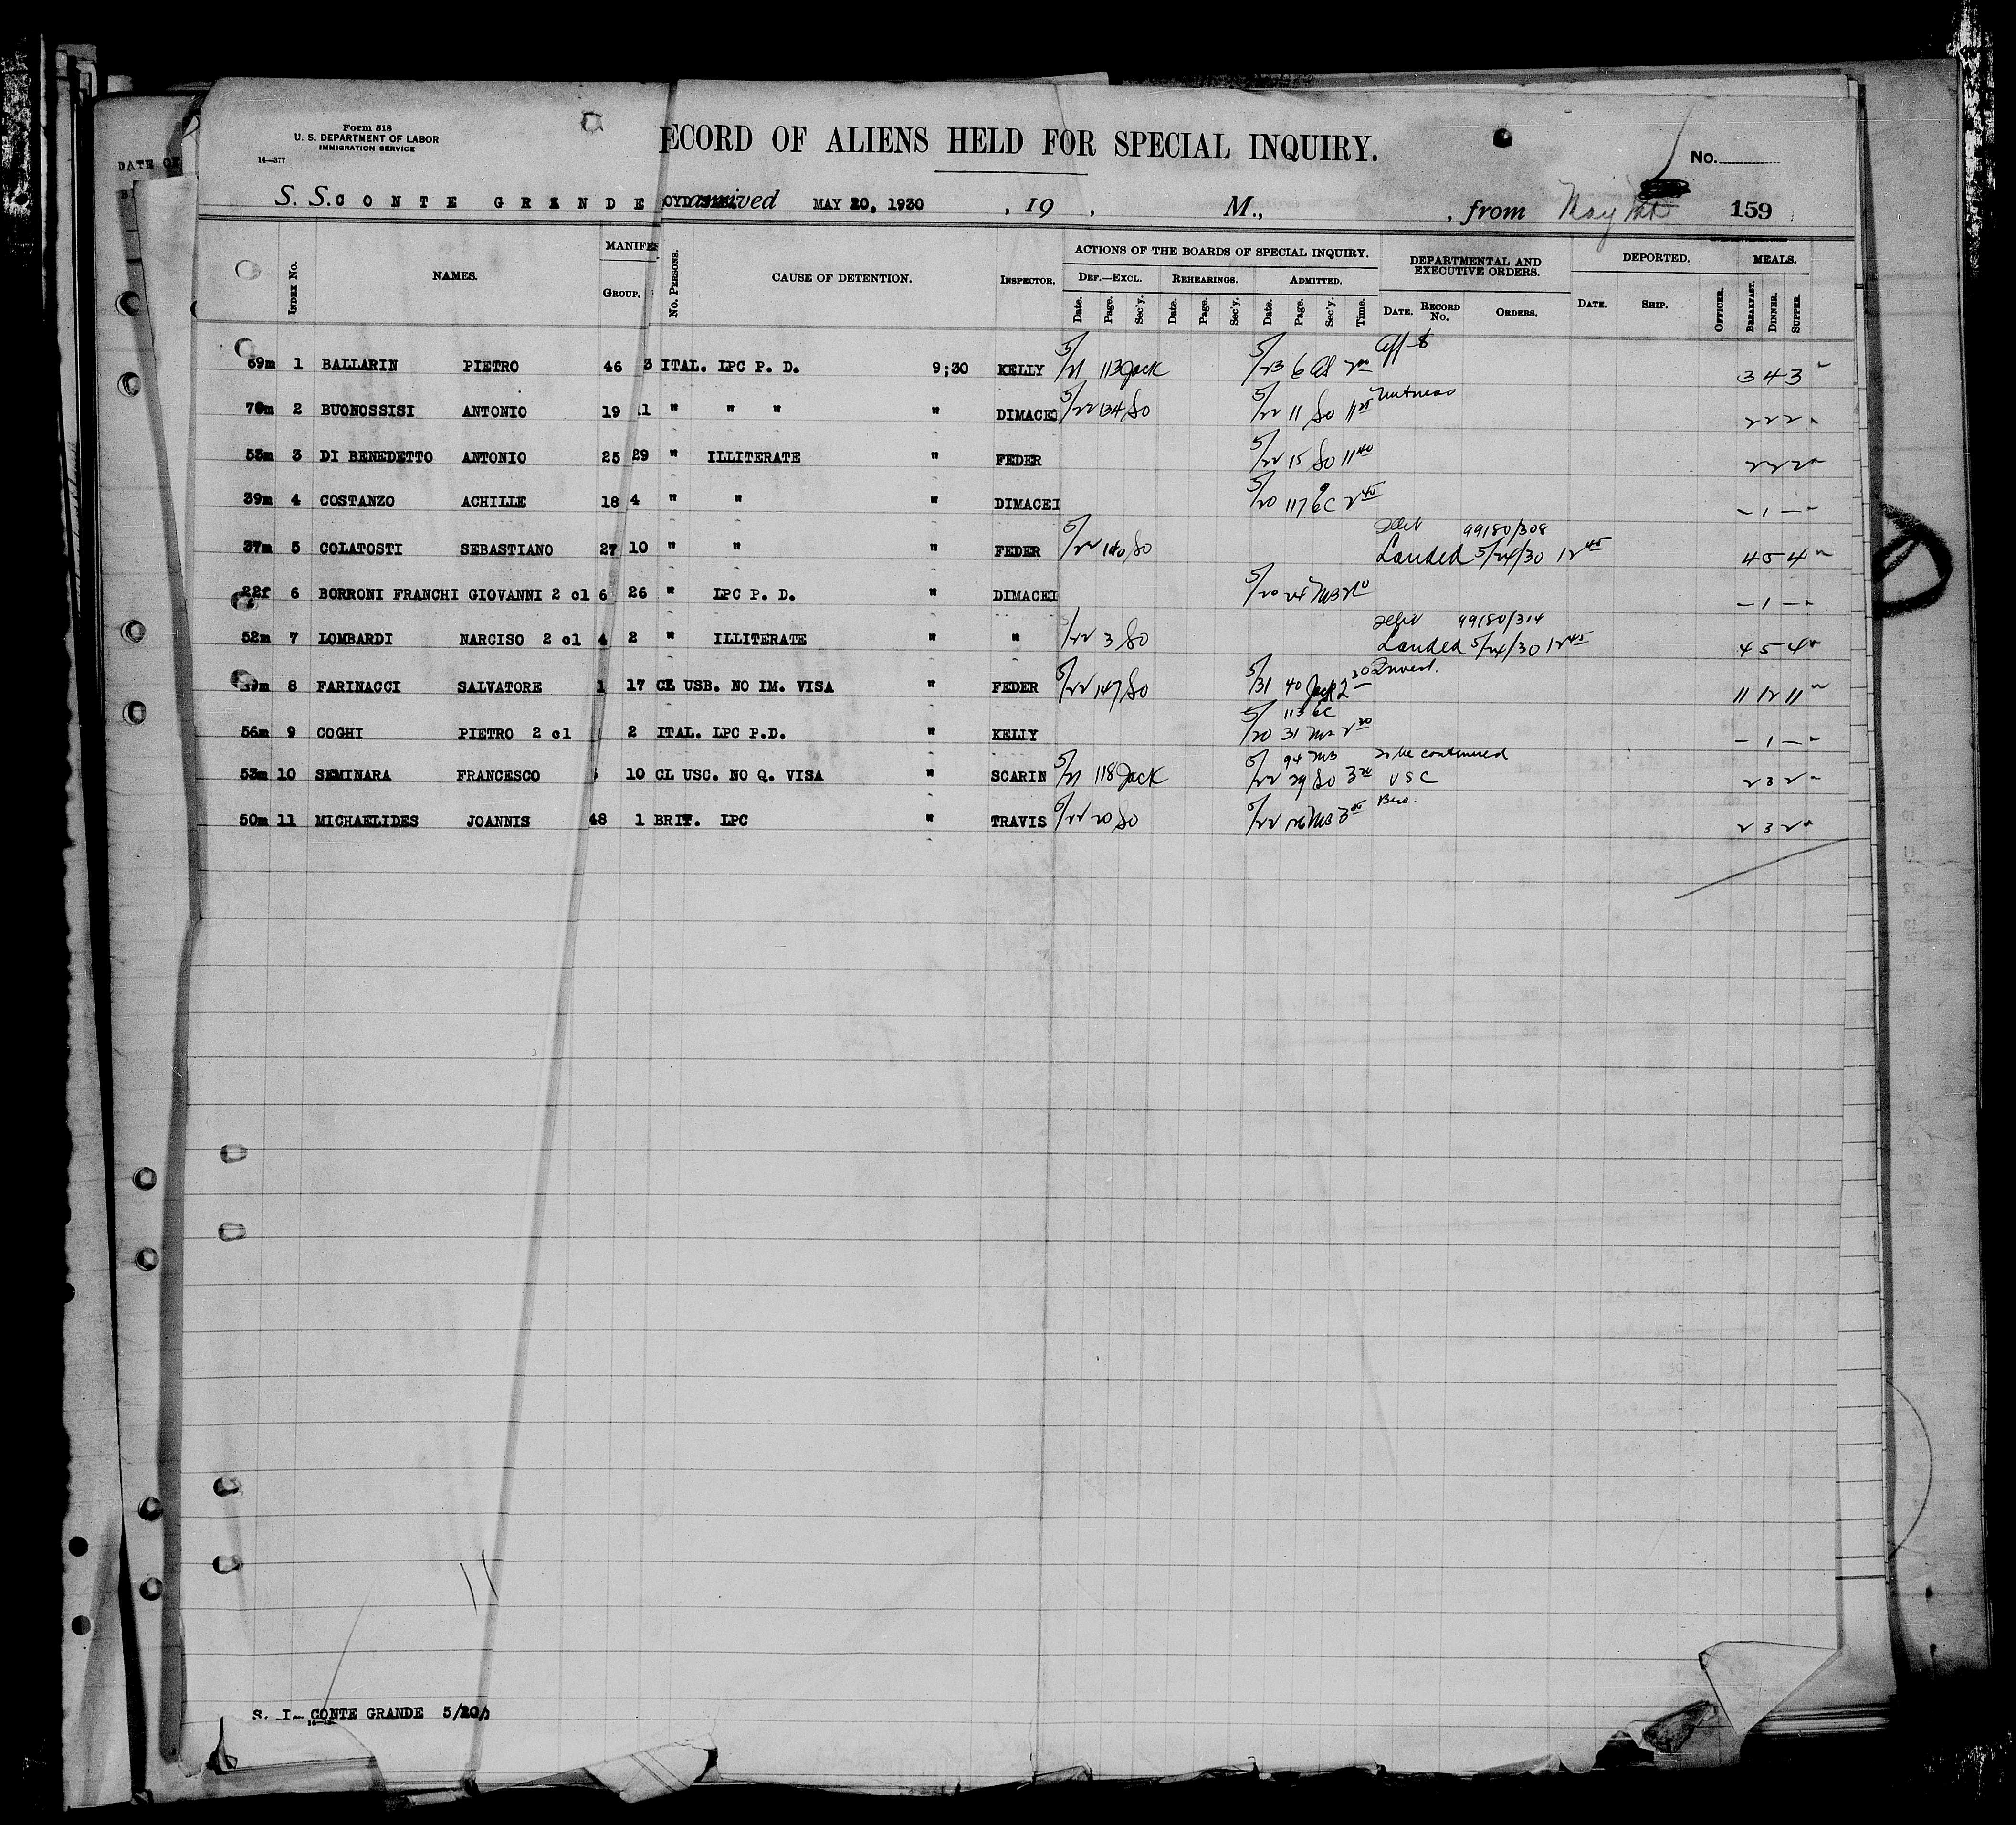 DATE OF
Form 518
U. S. DEPARTMENT OF LABOR
IMMIGRATION SERVICE
14—377
ECORD OF ALIENS HELD FOR SPECIAL INQUIRY.
No.
S. S. CONTE GRANDE arrived MAY 20, 1930 , 19 , M., , from 159
INDEX No. NAMES. MANIFES GROUP. No. PERSONS. CAUSE OF DETENTION. INSPECTOR. ACTIONS OF THE BOARDS OF SPECIAL INQUIRY. DEPARTMENTAL AND EXECUTIVE ORDERS. DEPORTED. MEALS.
DEF.—EXCL. REHEARINGS. ADMITTED.
Date. Page. Sec'y. Date. Page. Sec'y. Date. Page. Sec'y. Time. DATE. RECORD No. ORDERS. DATE. SHIP. OFFICER. BREAKFAST. DINNER. SUPPER.
59m 1 BALLARIN PIETRO 46 3 ITAL. LPC P. D. 9;30 KELLY 5/21 113 Jack 5/23 6 3 4 3
70m 2 BUONOSSISI ANTONIO 19 11 " " " " DIMACEI 5/22 134 SO 5/22 11 SO 11 Witness 2 2 2
53m 3 DI BENEDETTO ANTONIO 25 29 " ILLITERATE " FEDER 5/22 15 SO 11 40 2 2 2
39m 4 COSTANZO ACHILLE 18 4 " " " DIMACEI 5/20 117 GC 2 45 – 1 –
37m 5 COLATOSTI SEBASTIANO 27 10 " " " FEDER 5/22 140 SO 99180/308
Landed 5/24/30 12 45 4 5 4
22f 6 BORRONI FRANCHI GIOVANNI 2 cl 6 26 " LPC P. D. DIMACEI 5/20 24 MB – 1 –
52m 7 LOMBARDI NARCISO 2 cl 4 2 " ILLITERATE " " 5/22 3 SO 99180/314
Landed 5/24/30 12 45 4 5 4
8 FARINACCI SALVATORE 1 17 CL USB. NO IM. VISA " FEDER 5/22 147 SO 5/31 40 Jack 2 30 Invest. 11 12 11
56m 9 COGHI PIETRO 2 cl 2 ITAL. LPC P.D. " KELLY 113 GC
5/20 31 2 30 – 1 –
53m 10 SEMINARA FRANCESCO 10 CL USC. NO Q. VISA " SCARIN 5/21 118 Jack 94 MB To be continued
5/22 29 SO 3 USC 2 3 2
50m 11 MICHAELIDES JOANNIS 48 1 BRIT. LPC " TRAVIS 5/22 20 SO 5/22 126 MB 3 Bro. 2 3 2
11
S. I— CONTE GRANDE 5/20/